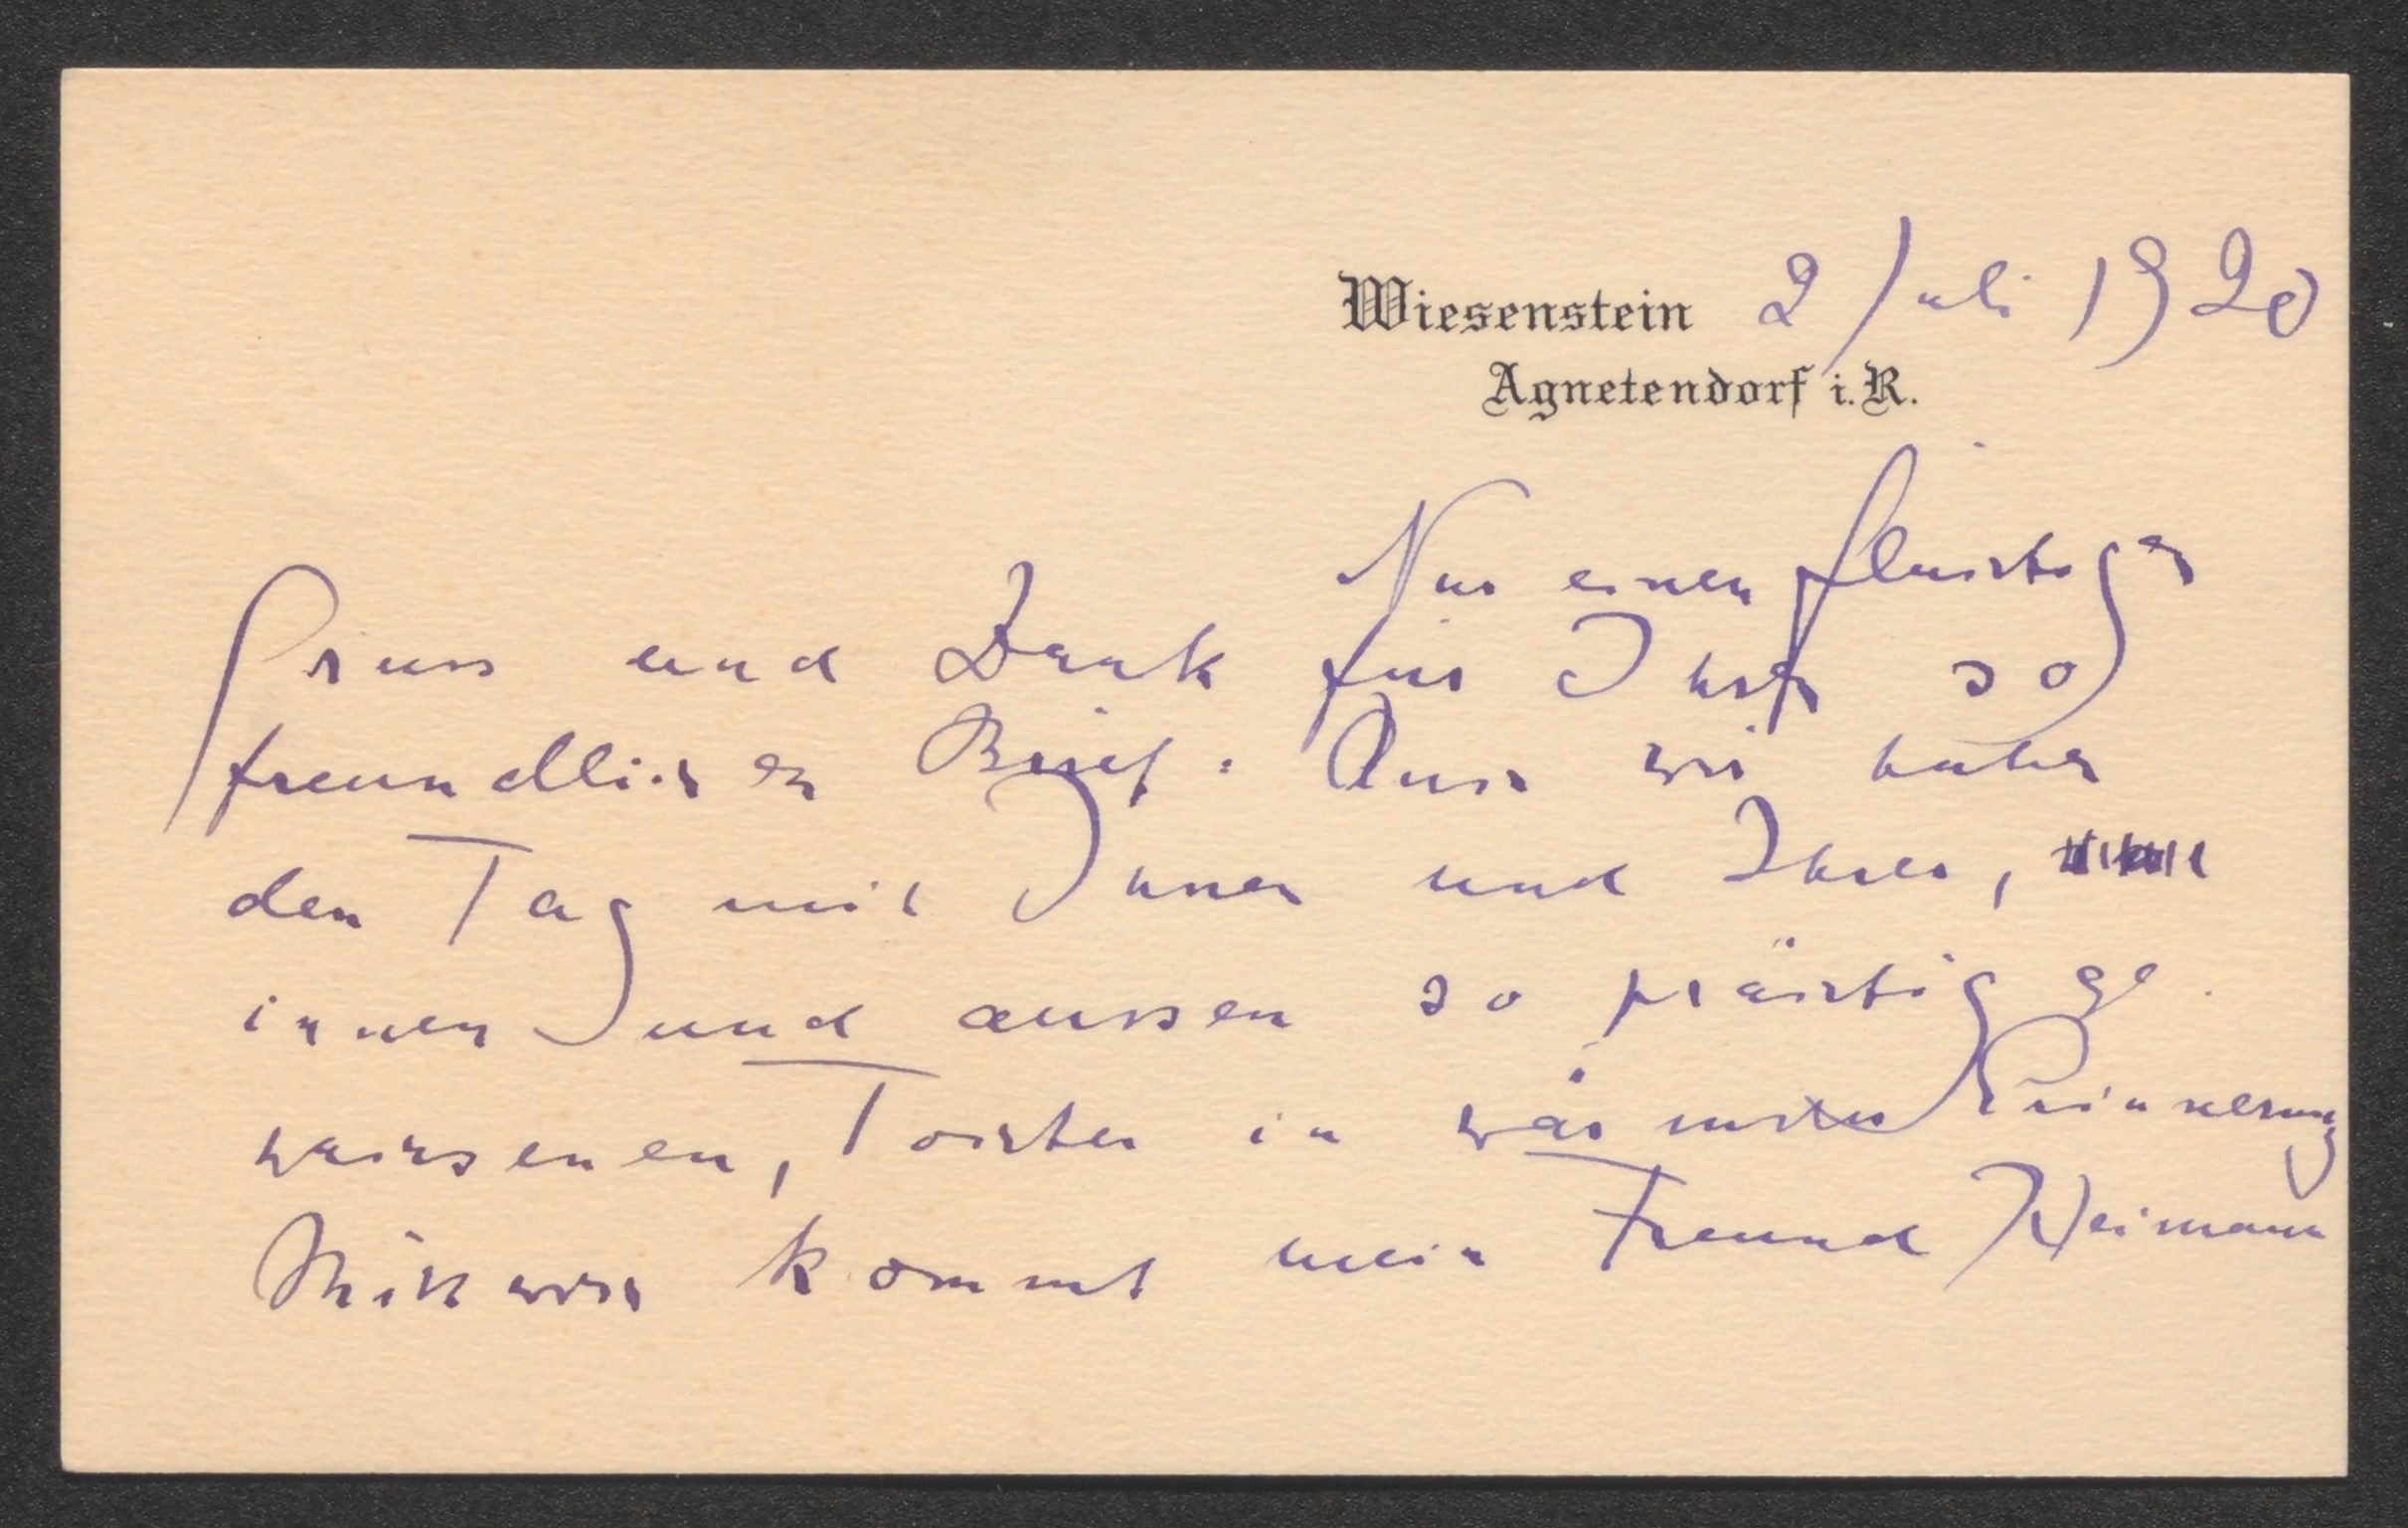 Wiesenstein 2 Juli 1920
Agnetendorf i. R.
Nur einen fluechtigen
Gruss und Dank für Ihren so
freundlichen Brief. Auch wir haben
den Tag mit Ihnen und Ihrer,
innen und aussen so prächtig ge-
wachsenen, Tochter in wärmster Erinnerung
Mittwoch kommt mein Freund Heimann